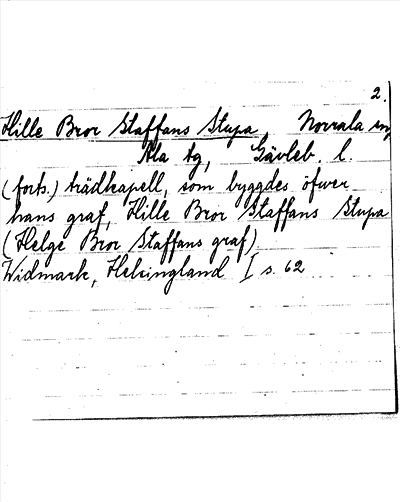 2.
Hille Bror Staffans Stupa, Norrala sn,
Ala tg, Gävleb. l.
(forts.) trädkapell, som byggdes öfwer
hans graf, Hille Bror Staffans Stupa
(Helge Bror Staffans graf).
Widmark, Helsingland I s. 62